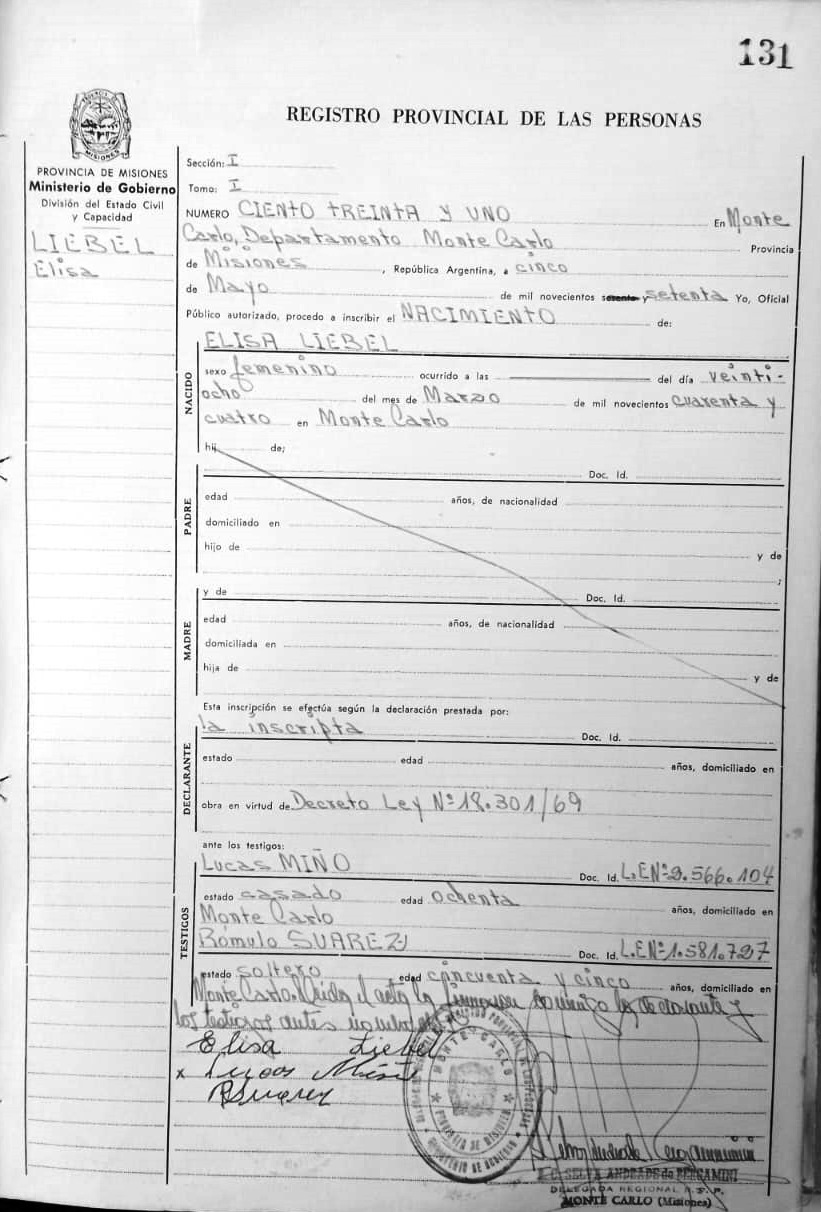 131
REGISTRO PROVINCIAL DE LAS PERSONAS
MISIONES
PROVINCIA DE MISIONES
Ministerio de Gobierno
División del Estado Civil
y Capacidad
LIEBEL
Elisa
Sección: I
Tomo: I
NUMERO CIENTO TREINTA Y UNO En Monte
Carlo, Departamento Monte Carlo Provincia
de Misiones, República Argentina, a cinco
de Mayo de mil novecientos sesenta y setenta Yo, Oficial
Público autorizado, procedo a inscribir el NACIMIENTO de:
NACIDO
ELISA LIEBEL
sexo femenino ocurrido a las del día veinti-
ocho del mes de Marzo de mil novecientos cuarenta y
cuatro en Monte Carlo
hij de;
PADRE
Doc. Id.
edad años, de nacionalidad
domiciliado en
hijo de y de
;
MADRE
y de Doc. Id.
edad años, de nacionalidad
domiciliada en
hija de y de
Esta inscripción se efectúa según la declaración prestada por:
DECLARANTE
la inscripta Doc. Id.
estado edad años, domiciliado en
obra en virtud de Decreto Ley Nº 18.301/69
ante los testigos:
TESTIGOS
Lucas MIÑO Doc. Id. L.E.Nº 2.566.104
estado casado edad ochenta años, domiciliado en
Monte Carlo
Rómulo SUAREZ Doc. Id. L.E.Nº 1.581.727
estado soltero edad cincuenta y cinco años, domiciliado en
Monte Carlo. Leida el acta la firmaron conmigo la declarante y
los testigos antes nombrados
Elisa Liebel
x Lucas Miño
RSuarez
MONTE CARLO
PROVINCIA DE MISIONES
SELVA ANDRADE de BERGAMINI
DELEGADA REGIONAL R.P.P.
MONTE CARLO (Misiones)